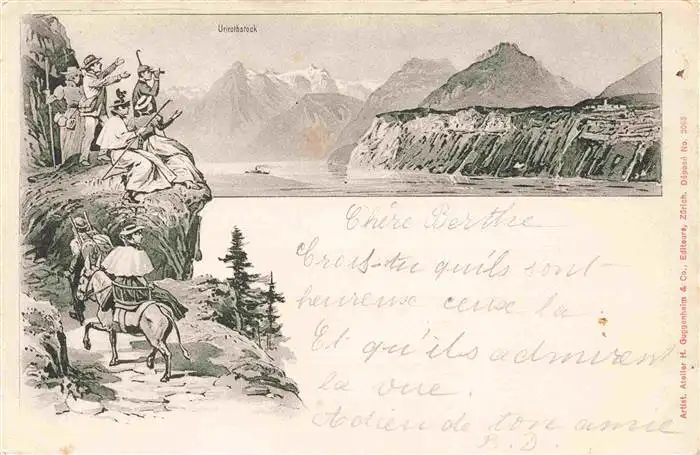 Urirothstock
Chère Berthe
Crois-tu qu'ils sont-
heureuse ceuse la
Et qu'ils admirent
la vue.
Adieu de ton amie
B. D.
Artist. Atelier H. Guggenheim & Co., Editeurs, Zürich. Déposé No. 2063